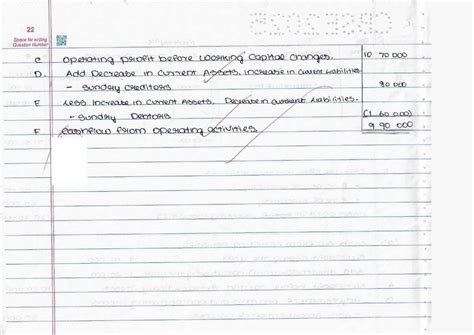 22
Space for writing
Question Number
C Operating profit before working capital changes. 10 70 000
D. Add Decrease in Current Assets, increase in Current liabilities
- Sundry creditors 80 000
E Less Increase in Current Assets. Decrease in current liabilities.
- Sundry Debtors (1 60 000)
F Cashflow from operating activities. 9 90 000